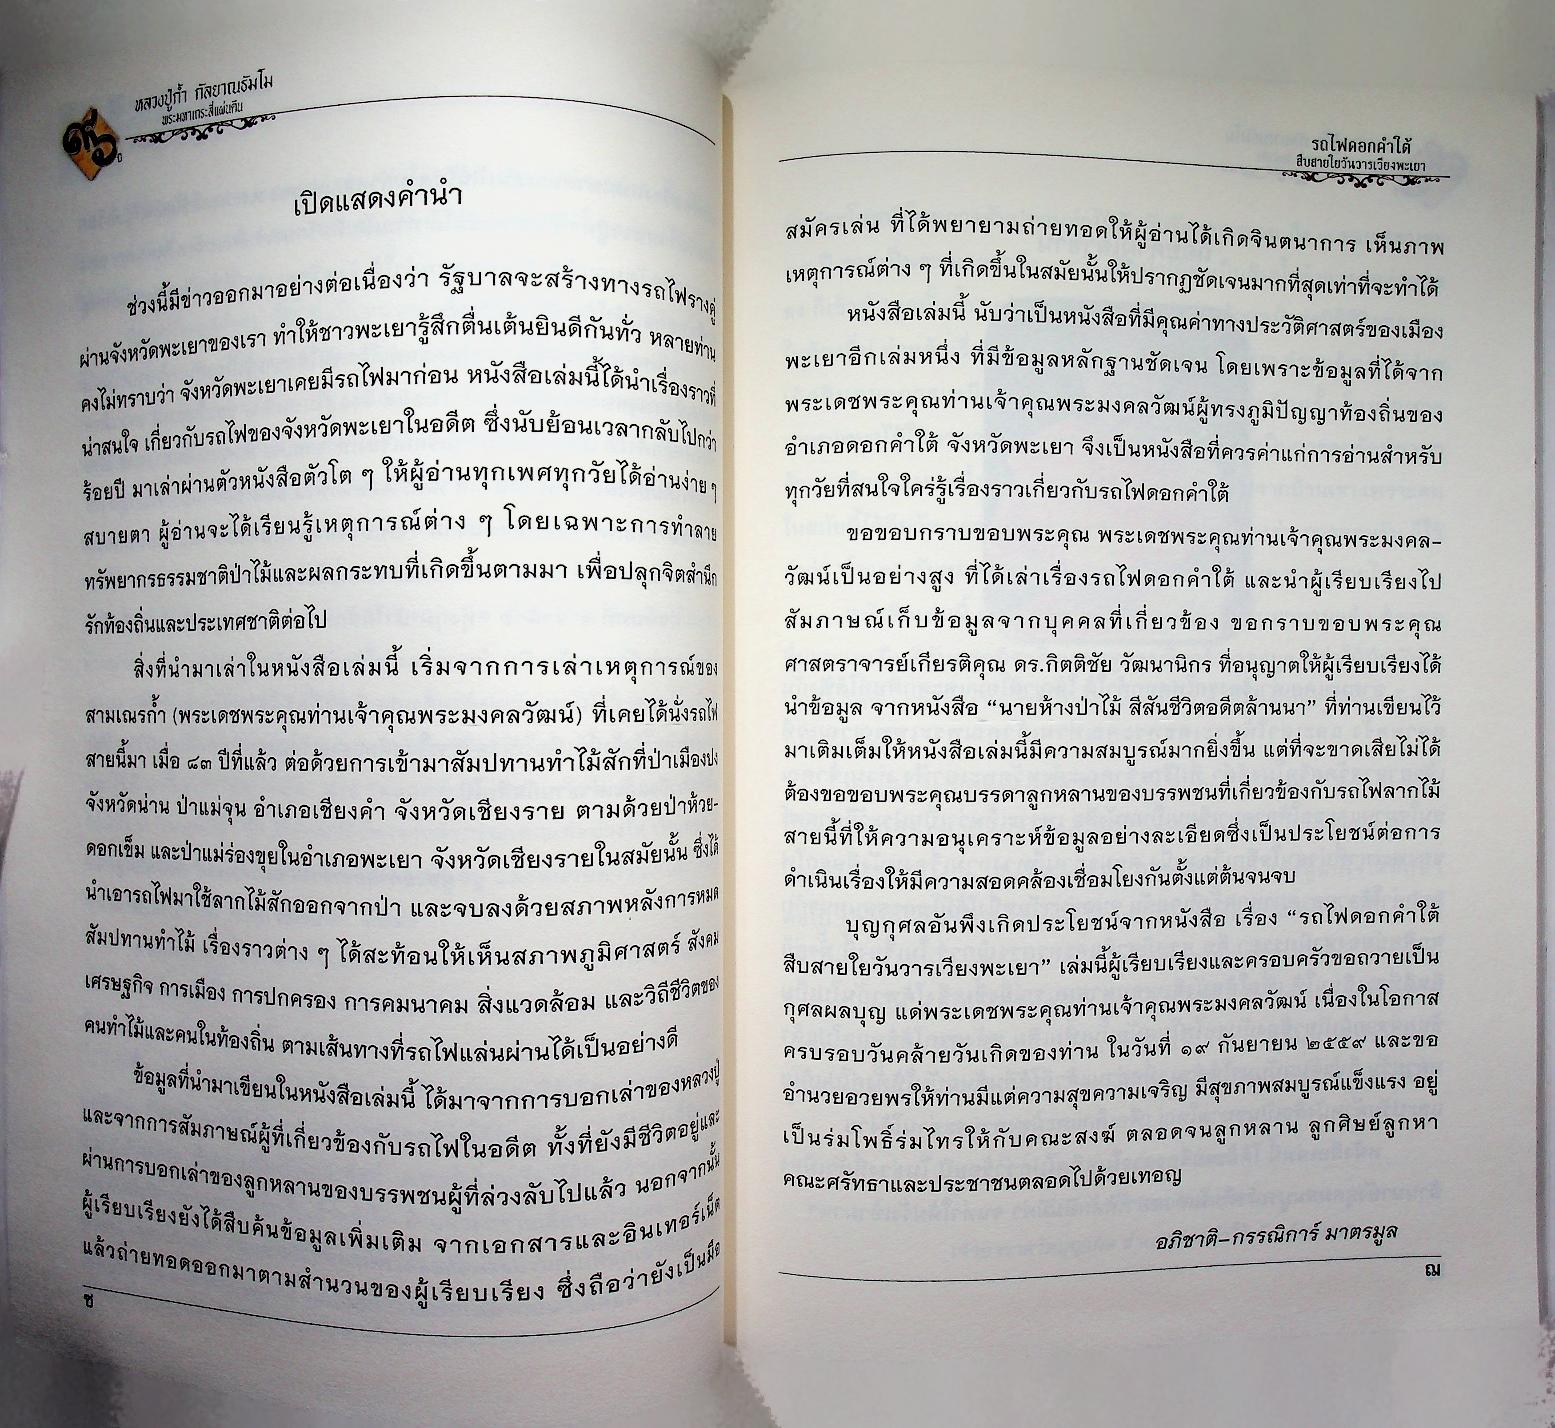 หลวงปู่ก้ำ กัลยาณธัมโม
พระมหาเถระสี่แผ่นดิน
เปิดแสดงคำนำ
ช่วงนี้มีข่าวออกมาอย่างต่อเนื่องว่า รัฐบาลจะสร้างทางรถไฟรางคู่
ผ่านจังหวัดพะเยาของเรา ทำให้ชาวพะเยารู้สึกตื่นเต้นยินดีกันทั่ว หลายท่าน
คงไม่ทราบว่า จังหวัดพะเยาเคยมีรถไฟมาก่อน หนังสือเล่มนี้ได้นำเรื่องราวที่
น่าสนใจ เกี่ยวกับรถไฟของจังหวัดพะเยาในอดีต ซึ่งนับย้อนเวลากลับไปกว่า
ร้อยปี มาเล่าผ่านตัวหนังสือตัวโต ๆ ให้ผู้อ่านทุกเพศทุกวัยได้อ่านง่าย ๆ
สบายตา ผู้อ่านจะได้เรียนรู้เหตุการณ์ต่าง ๆ โดยเฉพาะการทำลาย
ทรัพยากรธรรมชาติป่าไม้และผลกระทบที่เกิดขึ้นตามมา เพื่อปลุกจิตสำนึก
รักท้องถิ่นและประเทศชาติต่อไป
สิ่งที่นำมาเล่าในหนังสือเล่มนี้ เริ่มจากการเล่าเหตุการณ์ของ
สามเณรก้ำ (พระเดชพระคุณท่านเจ้าคุณพระมงคลวัฒน์) ที่เคยได้นั่งรถไฟ
สายนี้มา เมื่อ ๘๓ ปีที่แล้ว ต่อด้วยการเข้ามาสัมปทานทำไม้สักที่ป่าเมืองปง
จังหวัดน่าน ป่าแม่จุน อำเภอเชียงคำ จังหวัดเชียงราย ตามด้วยป่าห้วย-
ดอกเข็ม และป่าแม่ร่องขุยในอำเภอพะเยา จังหวัดเชียงรายในสมัยนั้น ซึ่งได้
นำเอารถไฟมาใช้ลากไม้สักออกจากป่า และจบลงด้วยสภาพหลังการหมด
สัมปทานทำไม้ เรื่องราวต่าง ๆ ได้สะท้อนให้เห็นสภาพภูมิศาสตร์ สังคม
เศรษฐกิจ การเมือง การปกครอง การคมนาคม สิ่งแวดล้อม และวิถีชีวิตของ
คนทำไม้และคนในท้องถิ่น ตามเส้นทางที่รถไฟแล่นผ่านได้เป็นอย่างดี
ข้อมูลที่นำมาเขียนในหนังสือเล่มนี้ ได้มาจากการบอกเล่าของหลวงปู่
และจากการสัมภาษณ์ผู้ที่เกี่ยวข้องกับรถไฟในอดีต ทั้งที่ยังมีชีวิตอยู่และ
ผ่านการบอกเล่าของลูกหลานของบรรพชนผู้ที่ล่วงลับไปแล้ว นอกจากนั้น
ผู้เรียบเรียงยังได้สืบค้นข้อมูลเพิ่มเติม จากเอกสารและอินเทอร์เน็ต
แล้วถ่ายทอดออกมาตามสำนวนของผู้เรียบเรียง ซึ่งถือว่ายังเป็นมือ
ซ
รถไฟดอกคำใต้
สืบสายใยวันวารเวียงพะเยา
สมัครเล่น ที่ได้พยายามถ่ายทอดให้ผู้อ่านได้เกิดจินตนาการ เห็นภาพ
เหตุการณ์ต่าง ๆ ที่เกิดขึ้นในสมัยนั้นให้ปรากฏชัดเจนมากที่สุดเท่าที่จะทำได้
หนังสือเล่มนี้ นับว่าเป็นหนังสือที่มีคุณค่าทางประวัติศาสตร์ของเมือง
พะเยาอีกเล่มหนึ่ง ที่มีข้อมูลหลักฐานชัดเจน โดยเพราะข้อมูลที่ได้จาก
พระเดชพระคุณท่านเจ้าคุณพระมงคลวัฒน์ผู้ทรงภูมิปัญญาท้องถิ่นของ
อำเภอดอกคำใต้ จังหวัดพะเยา จึงเป็นหนังสือที่ควรค่าแก่การอ่านสำหรับ
ทุกวัยที่สนใจใคร่รู้เรื่องราวเกี่ยวกับรถไฟดอกคำใต้
ขอขอบกราบขอบพระคุณ พระเดชพระคุณท่านเจ้าคุณพระมงคล-
วัฒน์เป็นอย่างสูง ที่ได้เล่าเรื่องรถไฟดอกคำใต้ และนำผู้เรียบเรียงไป
สัมภาษณ์เก็บข้อมูลจากบุคคลที่เกี่ยวข้อง ขอกราบขอบพระคุณ
ศาสตราจารย์เกียรติคุณ ดร.กิตติชัย วัฒนานิกร ที่อนุญาตให้ผู้เรียบเรียงได้
นำข้อมูล จากหนังสือ “นายห้างป่าไม้ สีสันชีวิตอดีตล้านนา” ที่ท่านเขียนไว้
มาเติมเต็มให้หนังสือเล่มนี้มีความสมบูรณ์มากยิ่งขึ้น แต่ที่จะขาดเสียไม่ได้
ต้องขอขอบพระคุณบรรดาลูกหลานของบรรพชนที่เกี่ยวข้องกับรถไฟลากไม้
สายนี้ที่ให้ความอนุเคราะห์ข้อมูลอย่างละเอียดซึ่งเป็นประโยชน์ต่อการ
ดำเนินเรื่องให้มีความสอดคล้องเชื่อมโยงกันตั้งแต่ต้นจนจบ
บุญกุศลอันพึงเกิดประโยชน์จากหนังสือ เรื่อง “รถไฟดอกคำใต้
สืบสายใยวันวารเวียงพะเยา” เล่มนี้ผู้เรียบเรียงและครอบครัวขอถวายเป็น
กุศลผลบุญ แด่พระเดชพระคุณท่านเจ้าคุณพระมงคลวัฒน์ เนื่องในโอกาส
ครบรอบวันคล้ายวันเกิดของท่าน ในวันที่ ๑๙ กันยายน ๒๕๕๙ และขอ
อำนวยอวยพรให้ท่านมีแต่ความสุขความเจริญ มีสุขภาพสมบูรณ์แข็งแรง อยู่
เป็นร่มโพธิ์ร่มไทรให้กับคณะสงฆ์ ตลอดจนลูกหลาน ลูกศิษย์ลูกหา
คณะศรัทธาและประชาชนตลอดไปด้วยเทอญ
อภิชาติ-กรรณิการ์ มาตรมูล
ฌ